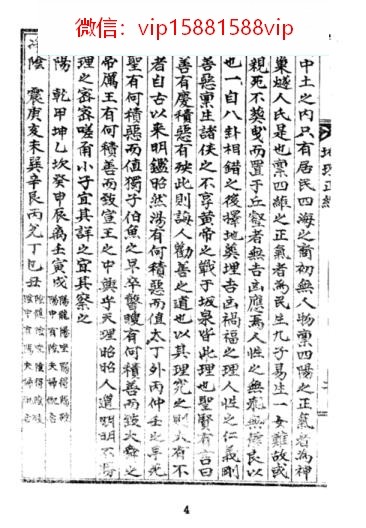 微信：vip15881588vip
地理正經
中土之內只有居民四海之裔初無人物稟四陽之正氣者為神
巢燧人氏是也稟四維之正氣者為民生九子易生一女難故或
親死不葬曳而置于丘壑者無吉凶應焉人性之無良以
也一自八卦相錯之後擇地葬埋吉凶禍福之理人性之仁義剛
善惡稟生諸侯之不享黃帝之戰于坂泉皆此理也聖賢有言曰
善有慶積惡有殃此則誨人勸善之道也以其理究之則大有不
者自古以來明鑑昭然湯有何積惡而值太丁外丙仲壬之早死
聖有何積惡而值獨子伯魚之早卒瞽瞍有何積善而致大舜之
帝厲王有何積善而致宣王之中興乎天理昭昭人道明明不
理之密密嗟爾小子宜其詳之宜其察之
陽 乾甲坤乙坎癸申辰离壬寅戌 陽龍陽坐陽得陽破
陰 震庚亥未巽辛艮丙兌丁巳丑
4